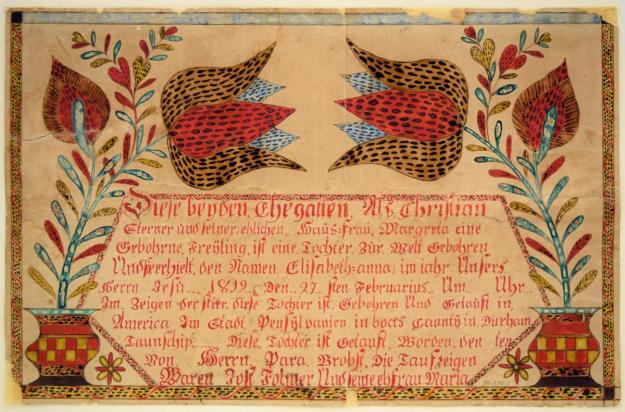 Diese beyden Ehegatten, Als Christian
Sterner und seiner ehlichen Haüs-frau, Margreta eine
Gebohrne, Freyling, ist eine Tochter, Zür Welt Gebohren
Und sie erhielt, den Namen Elisabeth-anna; im iahr Unsers
Herrn Jesu 1819 Den 27 sten Februarius Um Uhr
Im, Zeigen der stier, diese Tochter ist Gebohren Und Getaüft in
America Im Staat Pensylvanien in bocks Caünty in, Dürham
Taunschip Diese, Tochter ist Getaüft, Worden, den ten
Von Herrn, Para Brobst, Die Taüfzeigen
Waren Jost Folmer Und seine ehfrau Maria